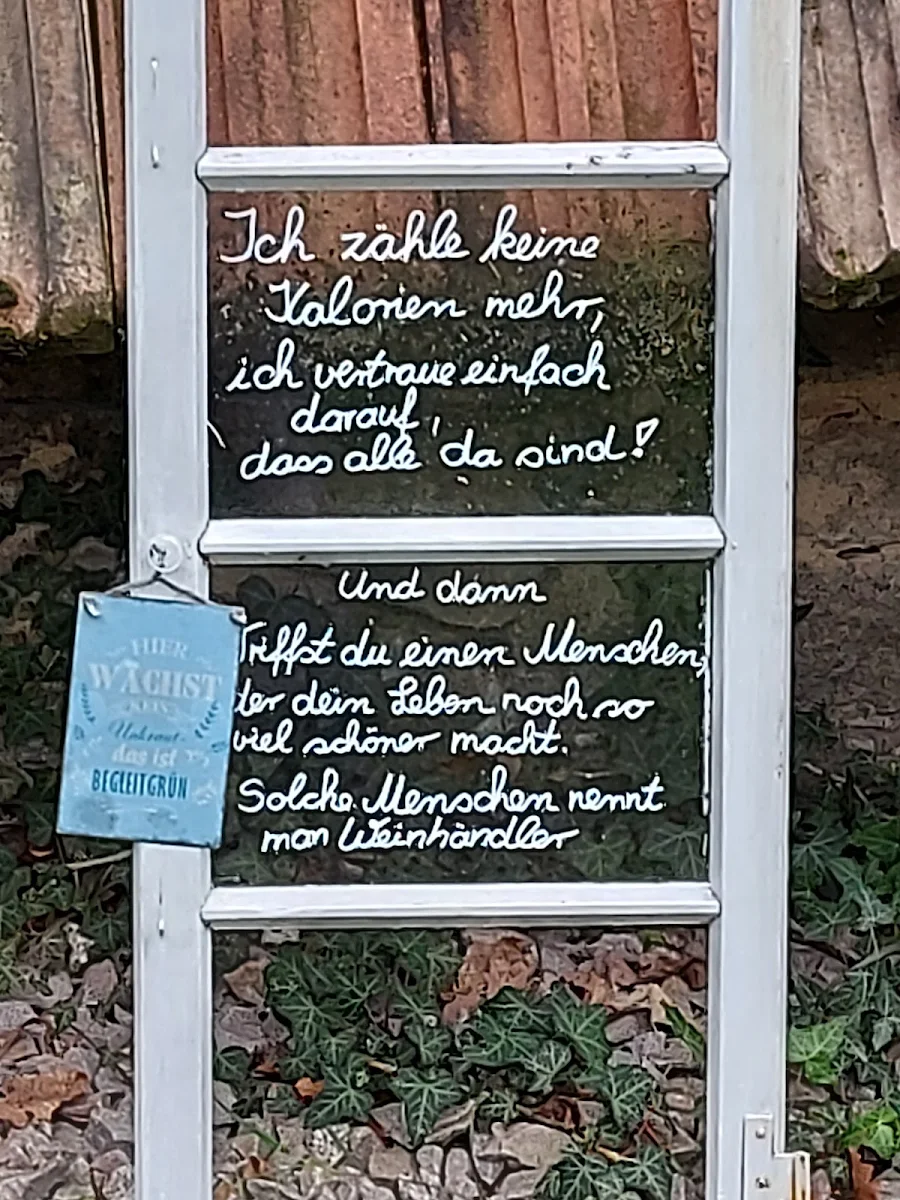 Ich zähle keine
Kalorien mehr,
ich vertraue einfach
darauf,
dass alle da sind!
Und dann
Triffst du einen Menschen,
der dein Leben noch so
viel schöner macht.
Solche Menschen nennt
man Weinhändler
HIER
WÄCHST
KEIN
Unkraut-
das ist
BEGLEITGRÜN